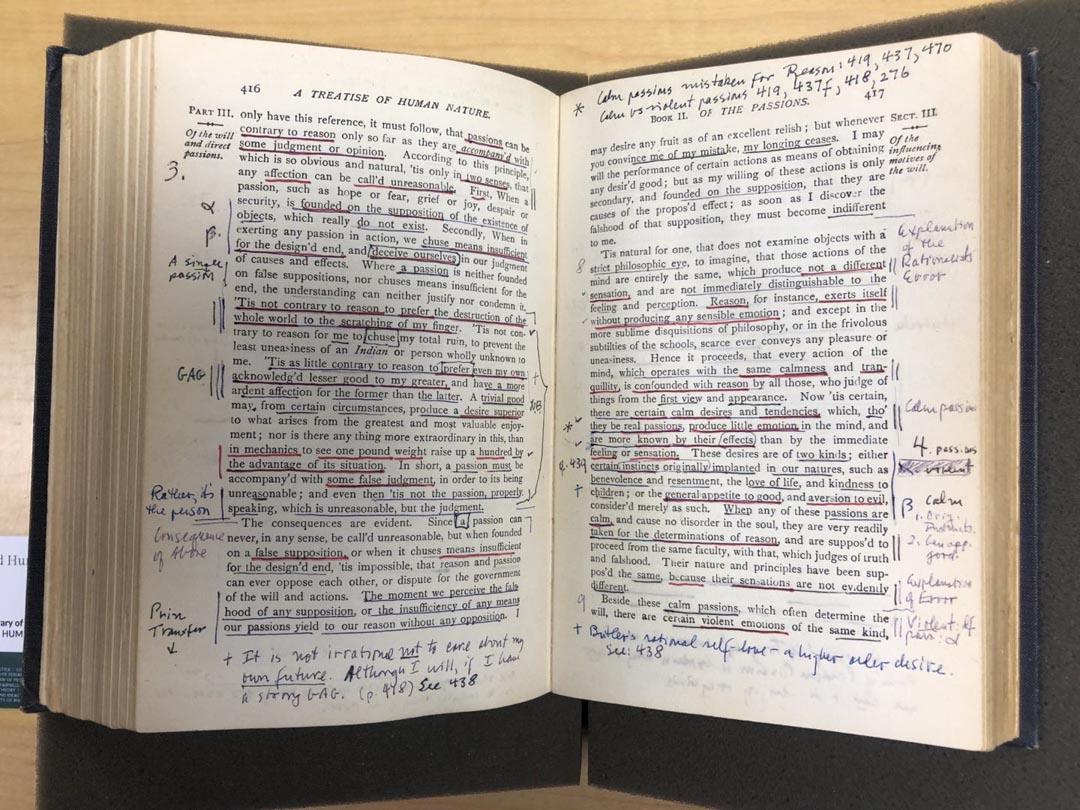 416 A TREATISE OF HUMAN NATURE.
PART III.
Of the will
and direct
passions.
3.
α
β.
A single
passion
GAG
Rather, it's
the person
Consequence
of Above
Transfer
only have this reference, it must follow, that passions can be
contrary to reason only so far as they are accompany'd with
some judgment or opinion. According to this principle,
which is so obvious and natural, 'tis only in two senses, that
any affection can be call'd unreasonable. First, When a
passion, such as hope or fear, grief or joy, despair or
security, is founded on the supposition of the existence of
objects, which really do not exist. Secondly, When in
exerting any passion in action, we chuse means insufficient
for the design'd end, and deceive ourselves in our judgment
of causes and effects. Where a passion is neither founded
on false suppositions, nor chuses means insufficient for the
end, the understanding can neither justify nor condemn it.
'Tis not contrary to reason to prefer the destruction of the
whole world to the scratching of my finger. 'Tis not con-
trary to reason for me to chuse my total ruin, to prevent the
least uneasiness of an Indian or person wholly unknown to
me. 'Tis as little contrary to reason to prefer even my own
acknowledg'd lesser good to my greater, and have a more
ardent affection for the former than the latter. A trivial good
may, from certain circumstances, produce a desire superior
to what arises from the greatest and most valuable enjoy-
ment; nor is there any thing more extraordinary in this, than
in mechanics to see one pound weight raise up a hundred by
the advantage of its situation. In short, a passion must be
accompany'd with some false judgment, in order to its being
unreasonable; and even then 'tis not the passion, properly
speaking, which is unreasonable, but the judgment.
The consequences are evident. Since a passion can
never, in any sense, be call'd unreasonable, but when founded
on a false supposition, or when it chuses means insufficient
for the design'd end, 'tis impossible, that reason and passion
can ever oppose each other, or dispute for the government
of the will and actions. The moment we perceive the fals
hood of any supposition, or the insufficiency of any means
our passions yield to our reason without any opposition.
+ It is not irrational not to care about my
own future. Although I will, if I have
a strong GAG. (p. 418) See 438
* Calm passions mistaken for Reason: 419, 437, 470
Calm vs violent passions 419, 437f, 418, 276
BOOK II. OF THE PASSIONS. 417
may desire any fruit as of an excellent relish; but whenever
you convince me of my mistake, my longing ceases. I may
will the performance of certain actions as means of obtaining
any desir'd good; but as my willing of these actions is only
secondary, and founded on the supposition, that they are
causes of the propos'd effect; as soon as I discover the
falshood of that supposition, they must become indifferent
to me.
'Tis natural for one, that does not examine objects with a
strict philosophic eye, to imagine, that those actions of the
mind are entirely the same, which produce not a different
sensation, and are not immediately distinguishable to the
feeling and perception. Reason, for instance, exerts itself
without producing any sensible emotion; and except in the
more sublime disquisitions of philosophy, or in the frivolous
subtilties of the schools, scarce ever conveys any pleasure or
uneasiness. Hence it proceeds, that every action of the
mind, which operates with the same calmness and tran-
quillity, is confounded with reason by all those, who judge of
things from the first view and appearance. Now 'tis certain,
there are certain calm desires and tendencies, which, tho'
they be real passions, produce little emotion in the mind, and
are more known by their effects than by the immediate
feeling or sensation. These desires are of two kinds; either
certain instincts originally implanted in our natures, such as
benevolence and resentment, the love of life, and kindness to
children; or the general appetite to good, and aversion to evil,
consider'd merely as such. When any of these passions are
calm, and cause no disorder in the soul, they are very readily
taken for the determinations of reason, and are suppos'd to
proceed from the same faculty, with that, which judges of truth
and falshood. Their nature and principles have been sup-
pos'd the same, because their sensations are not evidently
different.
Beside these calm passions, which often determine the
will, there are certain violent emotions of the same kind,
+ Butler's rational self-love - a higher order desire.
See: 438
SECT. III.
Of the
influencing
motives of
the will.
Explanation
of the
Rationalists
Error
8
439
Calm passions
4. passions
β calm
1. Orig.
2. Gen app.
good
Explanation
of Error
9
Violent